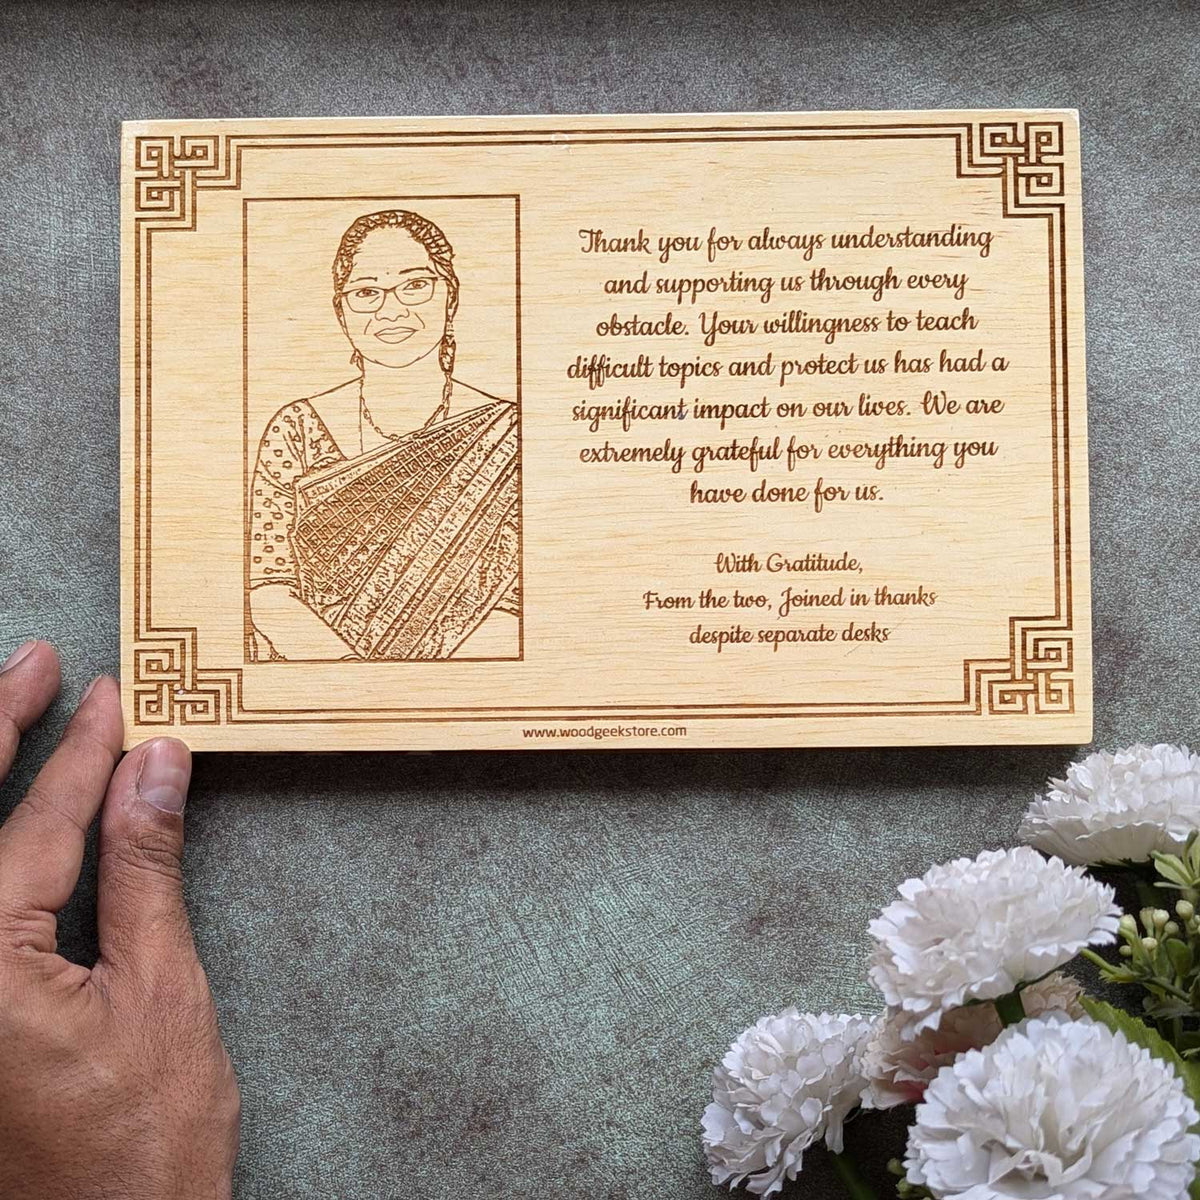 Thank you for always understanding
and supporting us through every
obstacle. Your willingness to teach
difficult topics and protect us has had a
significant impact on our lives. We are
extremely grateful for everything you
have done for us.
With Gratitude,
From the two, Joined in thanks
despite separate desks
www.woodgeekstore.com